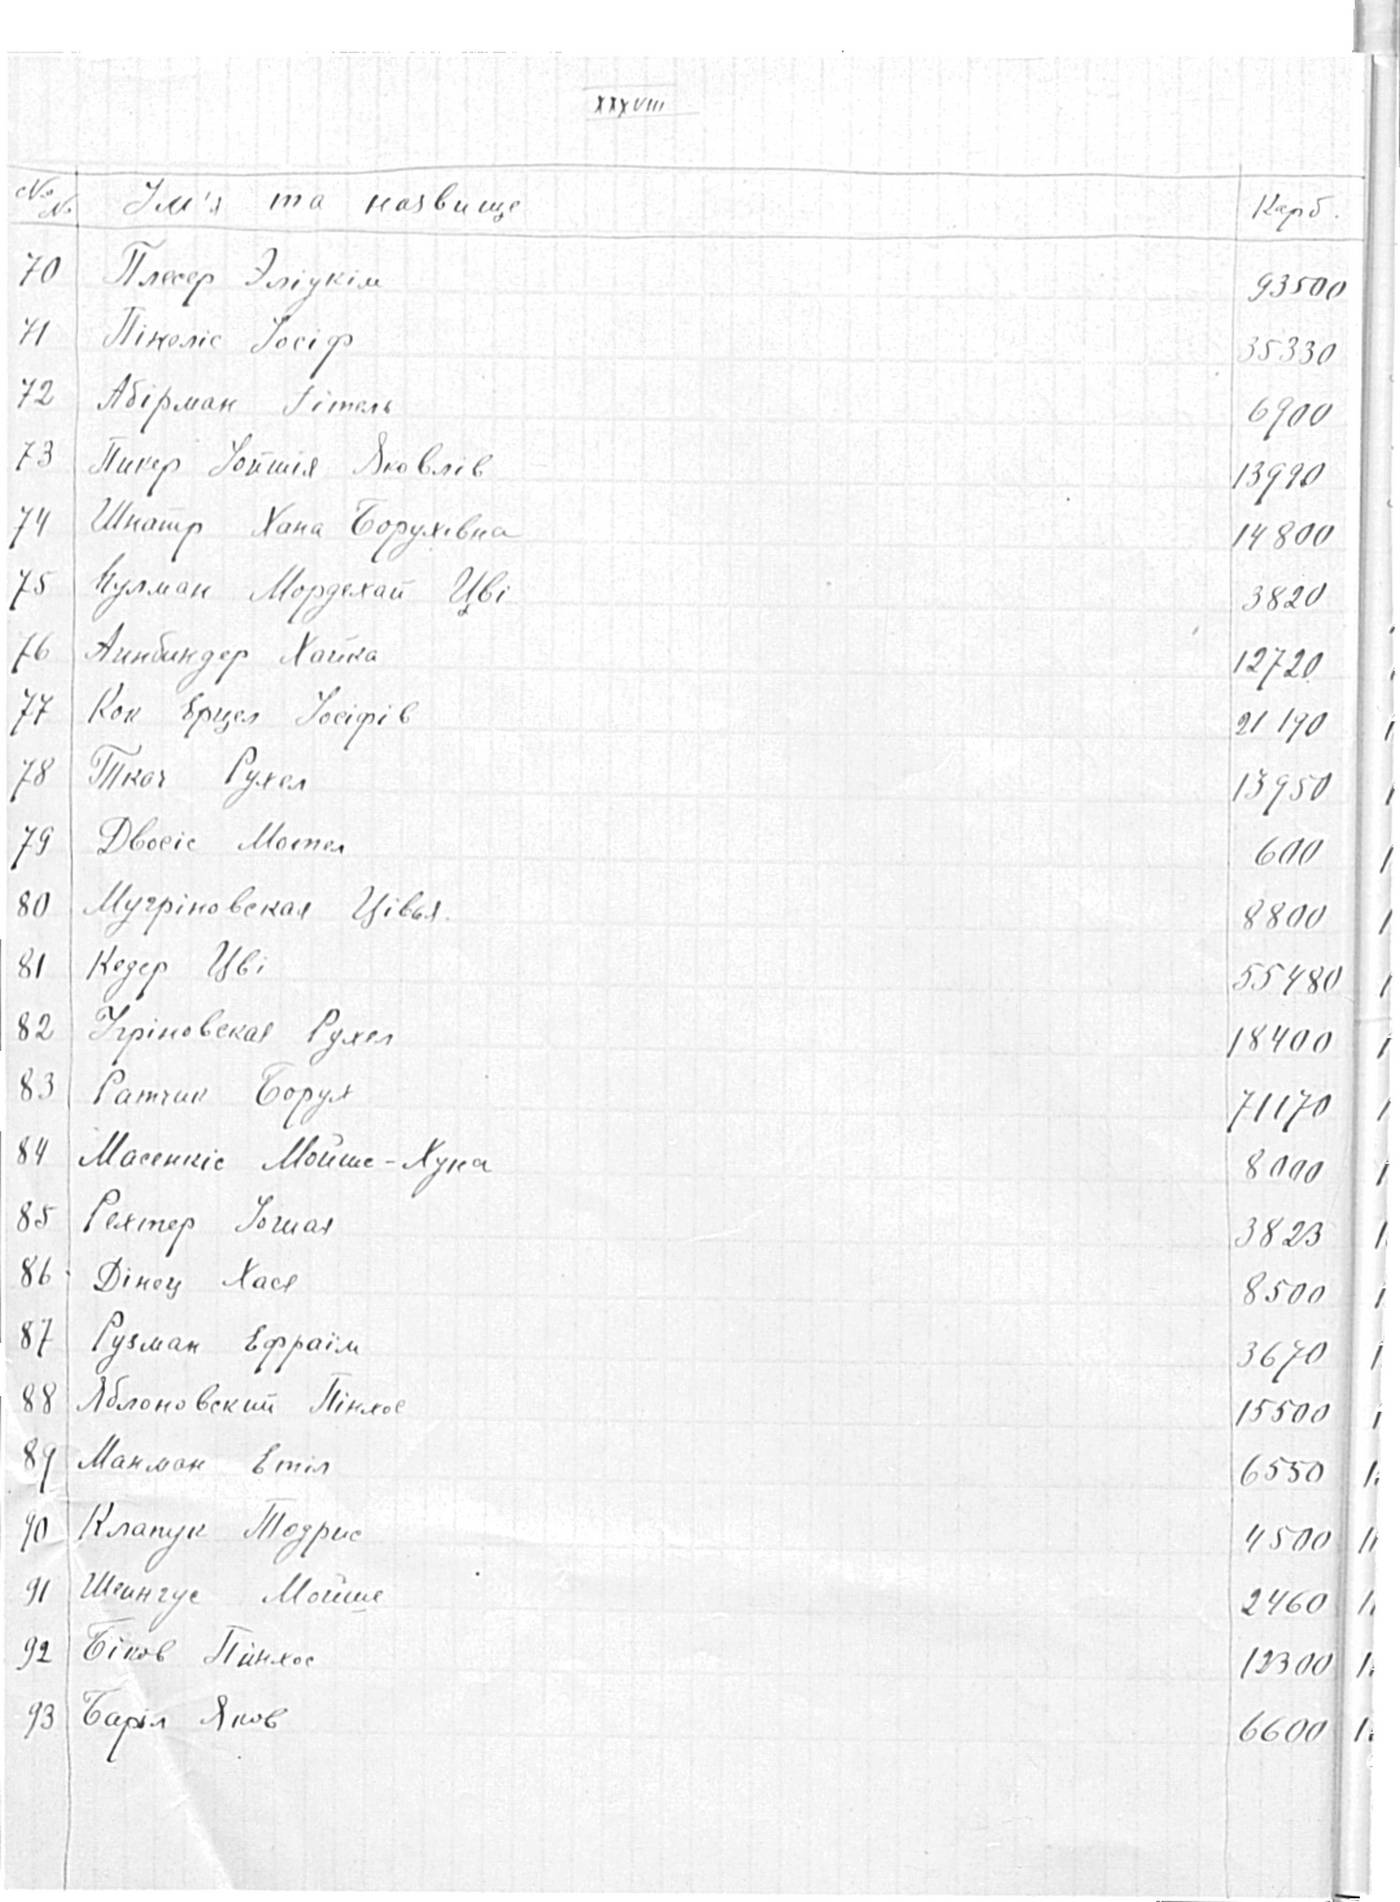 XXXVIII
№№ Ім'я та назвище Карб.
70 Плесер Эліукім 93500
71 Пікеліс Іосіф 35330
72 Абірман Гітель 6900
73 Пикер Іойшія Яковлів 13990
74 Шнатр Хана Борухівна 14800
75 Кулман Мордехай Цві 3820
76 Аинбиндер Хайка 12720
77 Кок Ерцел Іосіфів 21190
78 Ткач Рухел 13950
79 Двосіс Мотел 600
80 Мугріновская Цівья 8800
81 Кедер Цві 55480
82 Угріновская Рухел 18400
83 Ратчик Борух 71170
84 Масенкіс Мойше-Хуна 8000
85 Рехтер Іошая 3823
86 Дінец Хася 8500
87 Рузман Ефраїм 3670
88 Яблоновский Пінхос 15500
89 Манман Етіл 6550
90 Клапук Тодрис 4500
91 Шеингус Мойше 2460
92 Біков Пинхос 12300
93 Баріл Яков 6600